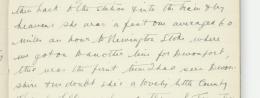 then back to the station & into the train & by
heavens she was a fast one averaged 60
miles an hour to Newington Stoke where
we got on to another line for Devonport,
this was the first time I had seen Devon-
shire Our doubt she's a lovely little County